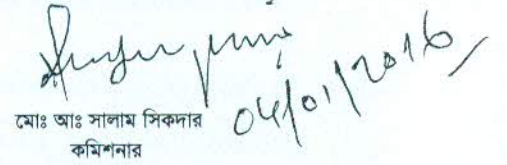 04/01/2016
মোঃ আঃ সালাম সিকদার
কমিশনার